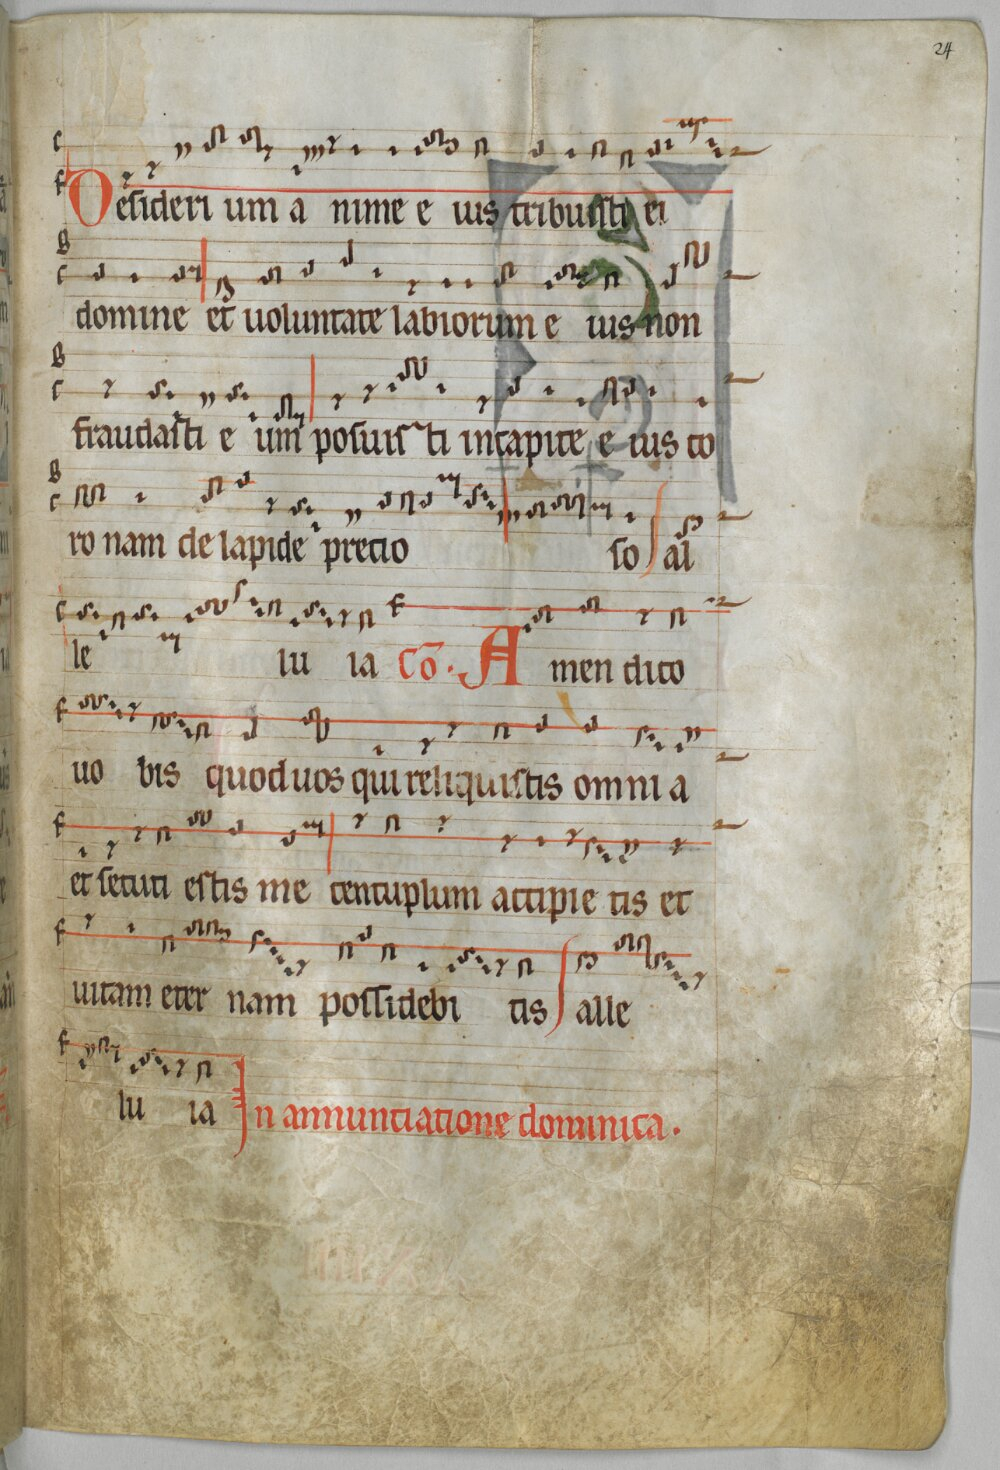 24
Desideri um a nime e ius tribuisti ei
domine et uoluntate labiorum e ius non
fraudasti e um posuis ti incapite e ius co
ro nam de lapide precio so al
le lu ia Cō. A men dico
uo bis quod uos qui reliquistis omni a
et secuti estis me centuplum accipie tis et
uitam eter nam possidebi tis alle
lu ia In annunciatione dominica.